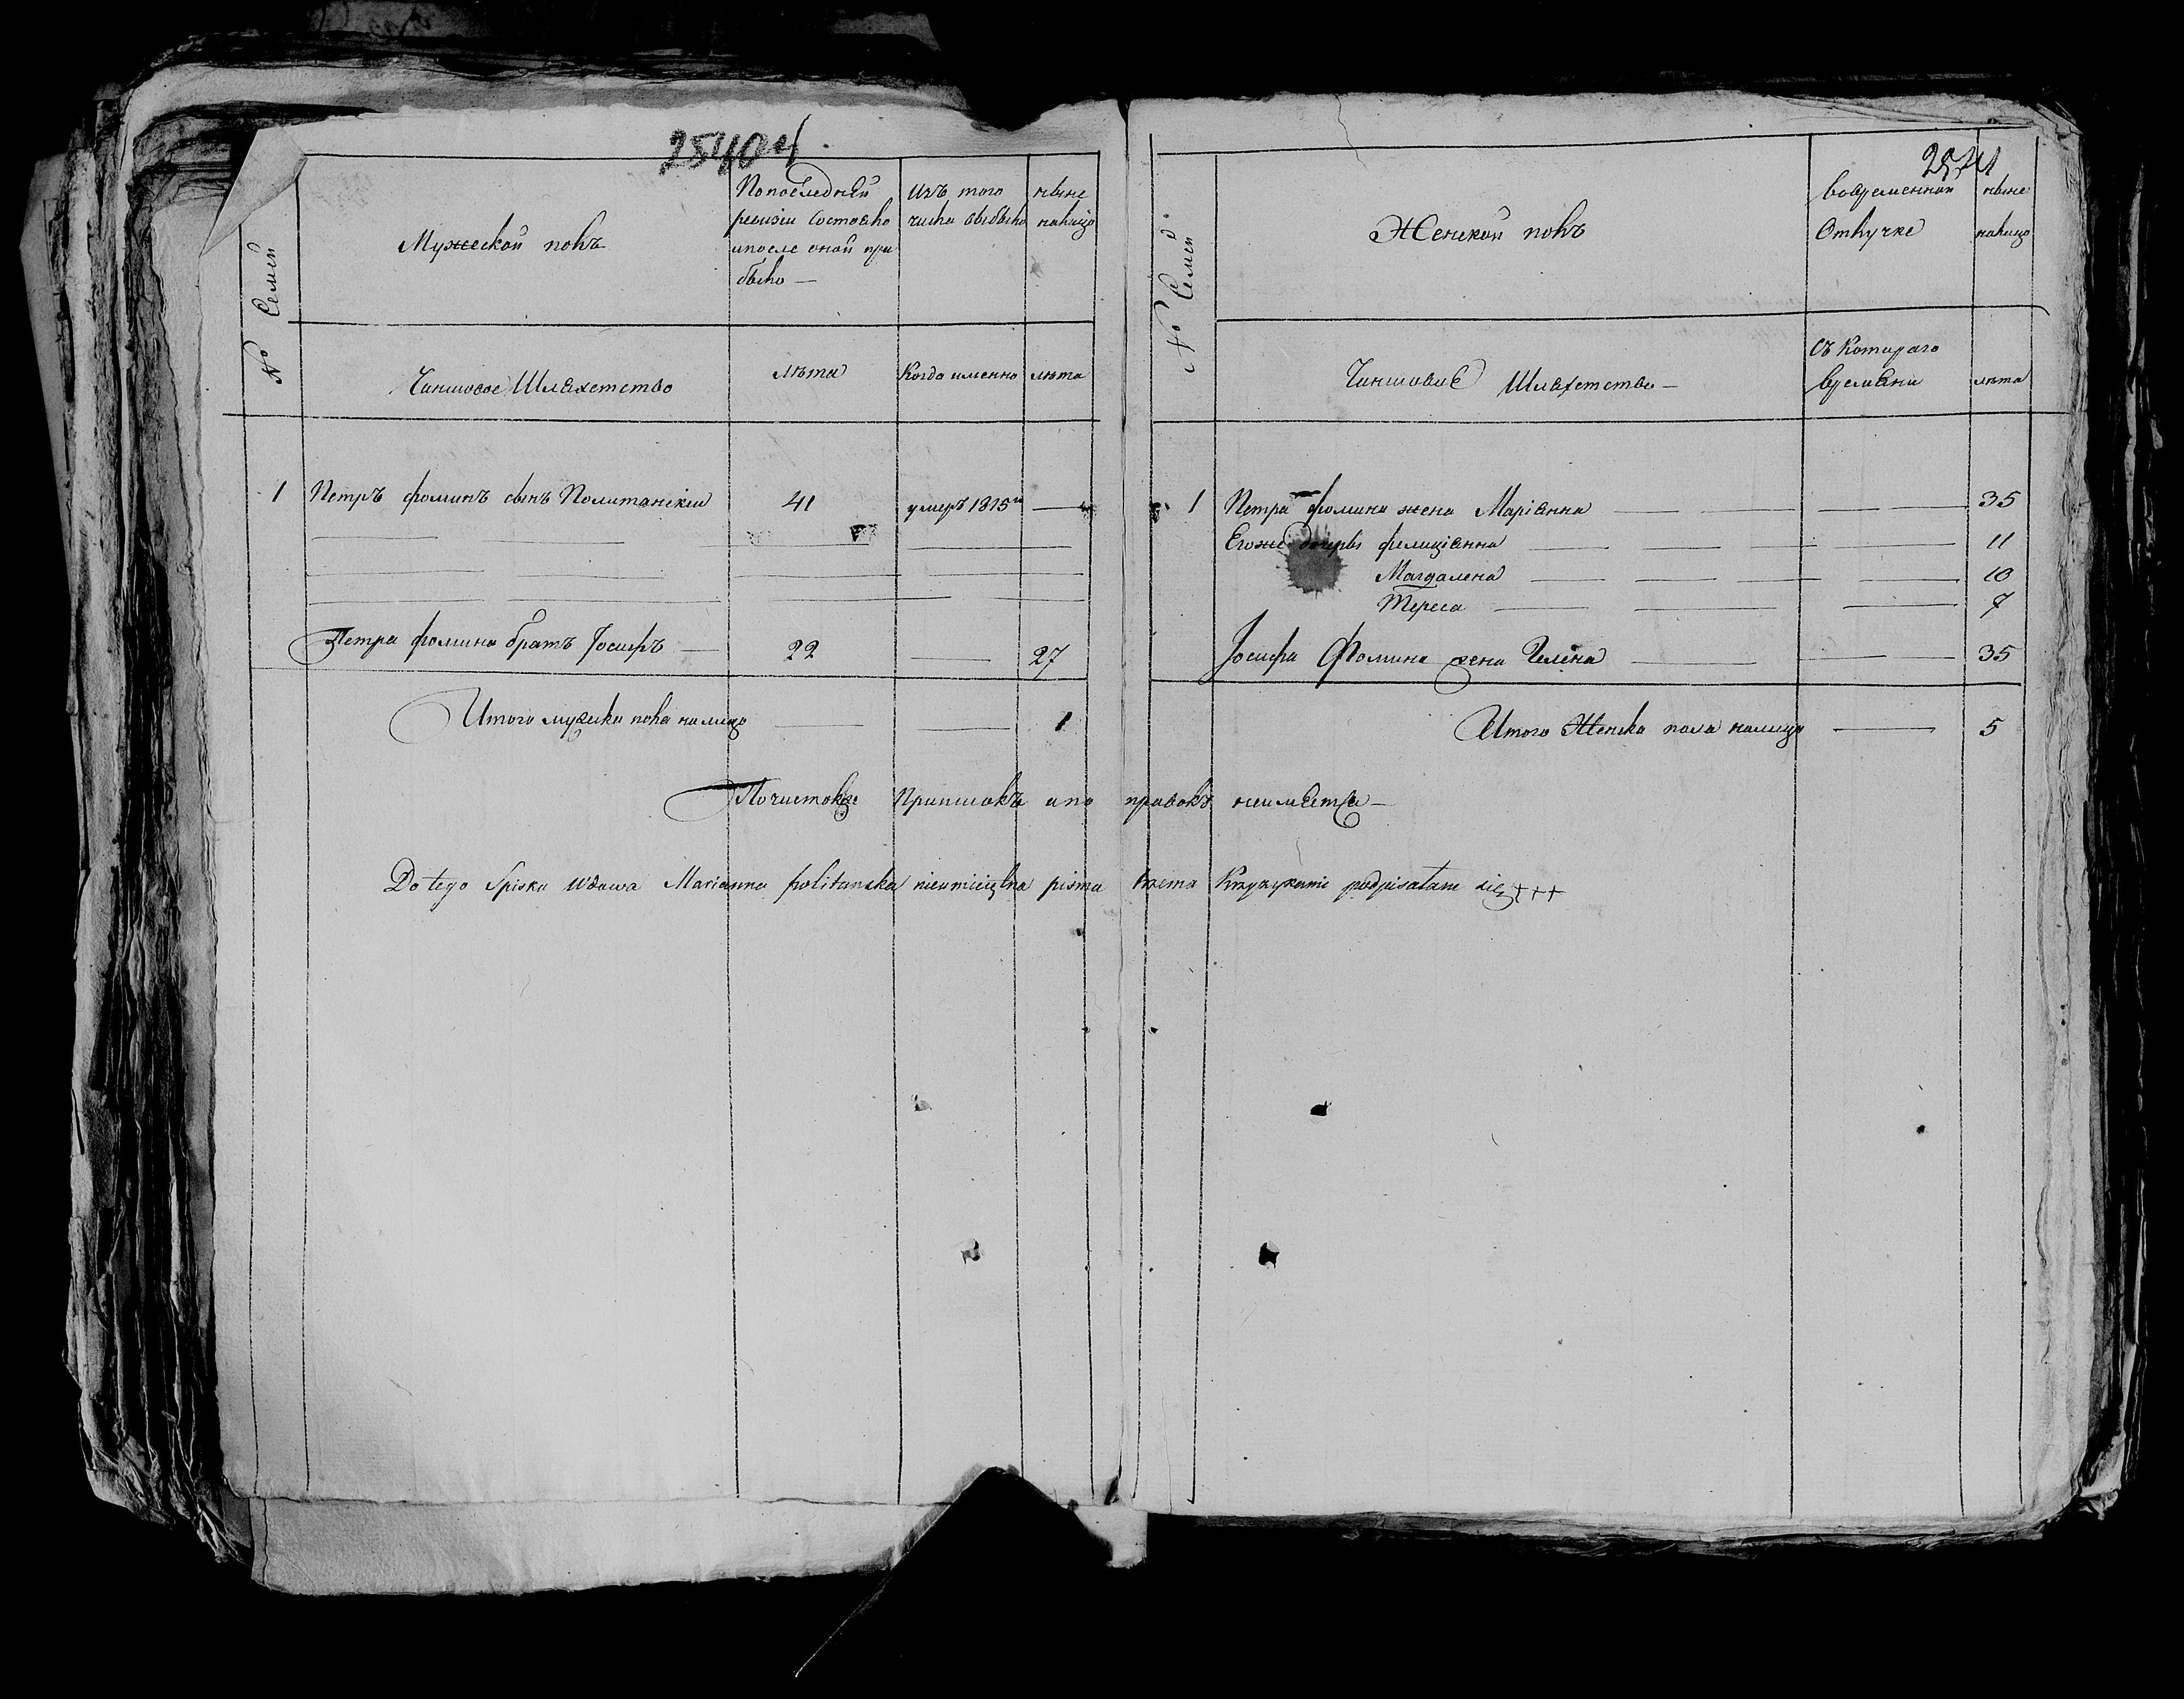 2540 ч
№ Семей
Мужеской полъ
По последней
ревизии состояло
и после оной при
было —
Изъ того
числа выбыло
ныне
налицо
Чиншовое Шляхетство
лѣта
Когда именно
лѣта
1 Петръ Фоминъ сынъ Политанскiи 41 умеръ 1815 —
Петра Фомина братъ Iосифъ — 22 — 27
Итого мужска пола налицо — — 1
№ Семей
Женской полъ
Во временной
Отлучке
ныне
налицо
Чиншовое Шляхетство —
Съ Котораго
времяни
лѣта
1 Петра Фомина жена Марiянна — — — 35
Егоже дочеры Фелицiянна — — — 11
Магдалена — — — 10
Тереса — — — 7
Iосифа Фомина жена Гелена — — 35
Итого Женска пола налицо — 5
Почистокъ Приписокъ и по правокъ неимѣетсе —
Do tego Spisku Wdowa Marianna Politanska nieumieiętna pisma trzema Krzyżykami podpisałam się +++